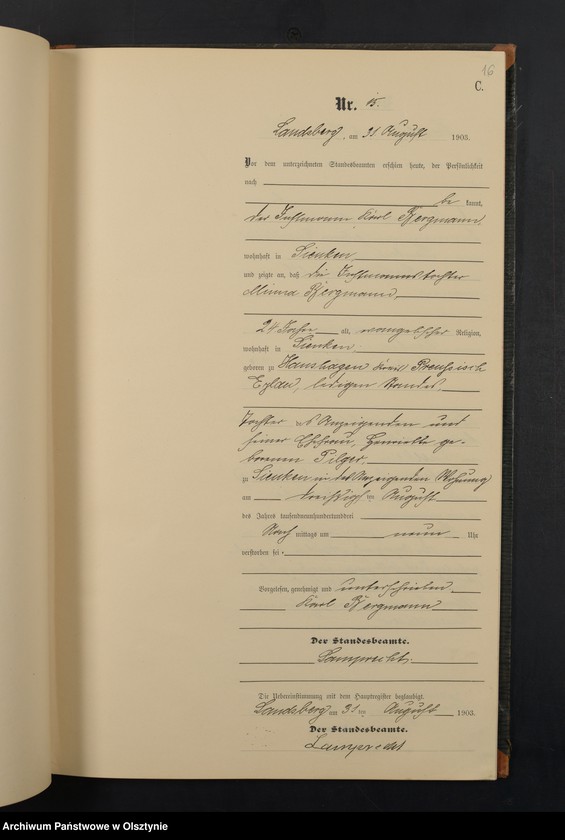 16
C.
Nr. 15.
Landsberg, am 31. August 1903.
Vor dem unterzeichneten Standesbeamten erschien heute, der Persönlichkeit
nach
be kannt,
der Instmann Karl Bergmann,
wohnhaft in Sienken
und zeigte an, daß die Instmannstochter
Minna Bergmann,
24 Jahre alt, evangelischer Religion,
wohnhaft in Sienken,
geboren zu Hanshagen Kreis Preußisch
Eylau, ledigen Standes,
Tochter des Anzeigenden und
seiner Ehefrau, Henriette ge-
borenen Pilger,
zu Sienken in des Anzeigenden Wohnung
am dreißigsten August
des Jahres tausendneunhundertunddrei
Nach mittags um neun Uhr
verstorben sei.
Vorgelesen, genehmigt und unterschrieben
Karl Bergmann
Der Standesbeamte.
Lamprecht.
Die Uebereinstimmung mit dem Hauptregister beglaubigt.
Landsberg am 31 ten August 1903.
Der Standesbeamte.
Lamprecht
Archiwum Państwowe w Olsztynie